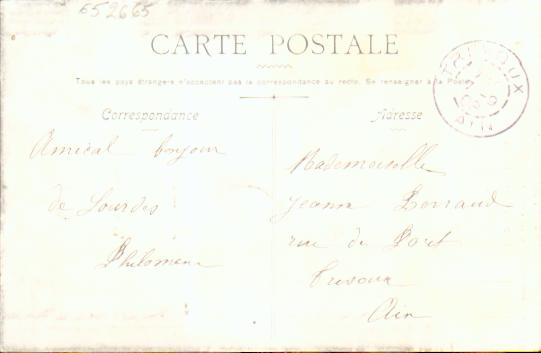 652665
CARTE POSTALE
Tous les pays étrangers n'acceptent pas la correspondance au recto. Se renseigner à la Poste
TRÉVOUX
AIN
Correspondance
Amical bonjour
de Lourdes
Philomène
Adresse
Mademoiselle
Jeanne
rue du Port
Trévoux
Ain